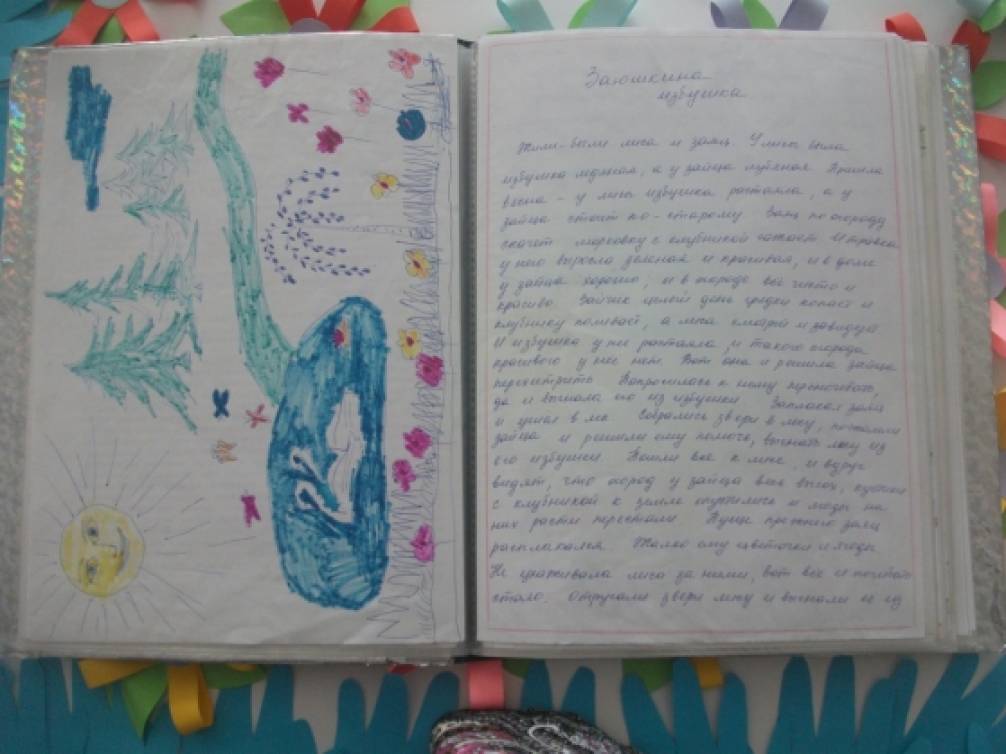 Заюшкина
избушка
Жили-были лиса и заяц. У лисы была
избушка ледяная, а у зайца лубяная. Пришла
весна - у лисы избушка растаяла, а у
зайца стоит по-старому. Заяц по огороду
скачет морковку с клубникой сажает. И травка
у него выросла зеленая и красивая, и в доме
у зайца хорошо, и в огороде всё чисто и
красиво. Зайчик целый день грядки копает и
клубнику поливает, а лиса смотрит и завидует
И избушка у неё растаяла, и такого огорода
красивого у неё нет. Вот она и решила зайца
перехитрить. Попросилась к нему переночевать,
да и выгнала его из избушки. Заплакал заяц
и ушел в лес. Собрались звери в лесу, пожалели
зайца и решили ему помочь, выгнать лису из
его избушки. Пошли все к лисе, и вдруг
видят, что огород у зайца весь высох, кустики
с клубникой к земле опустились и ягоды на
них расти перестали. Пуще прежнего заяц
расплакался. Жалко ему цветочки и ягоды
Не ухаживала лиса за ними, вот всё и погибать
стало. Отругали звери лису и выгнали её из